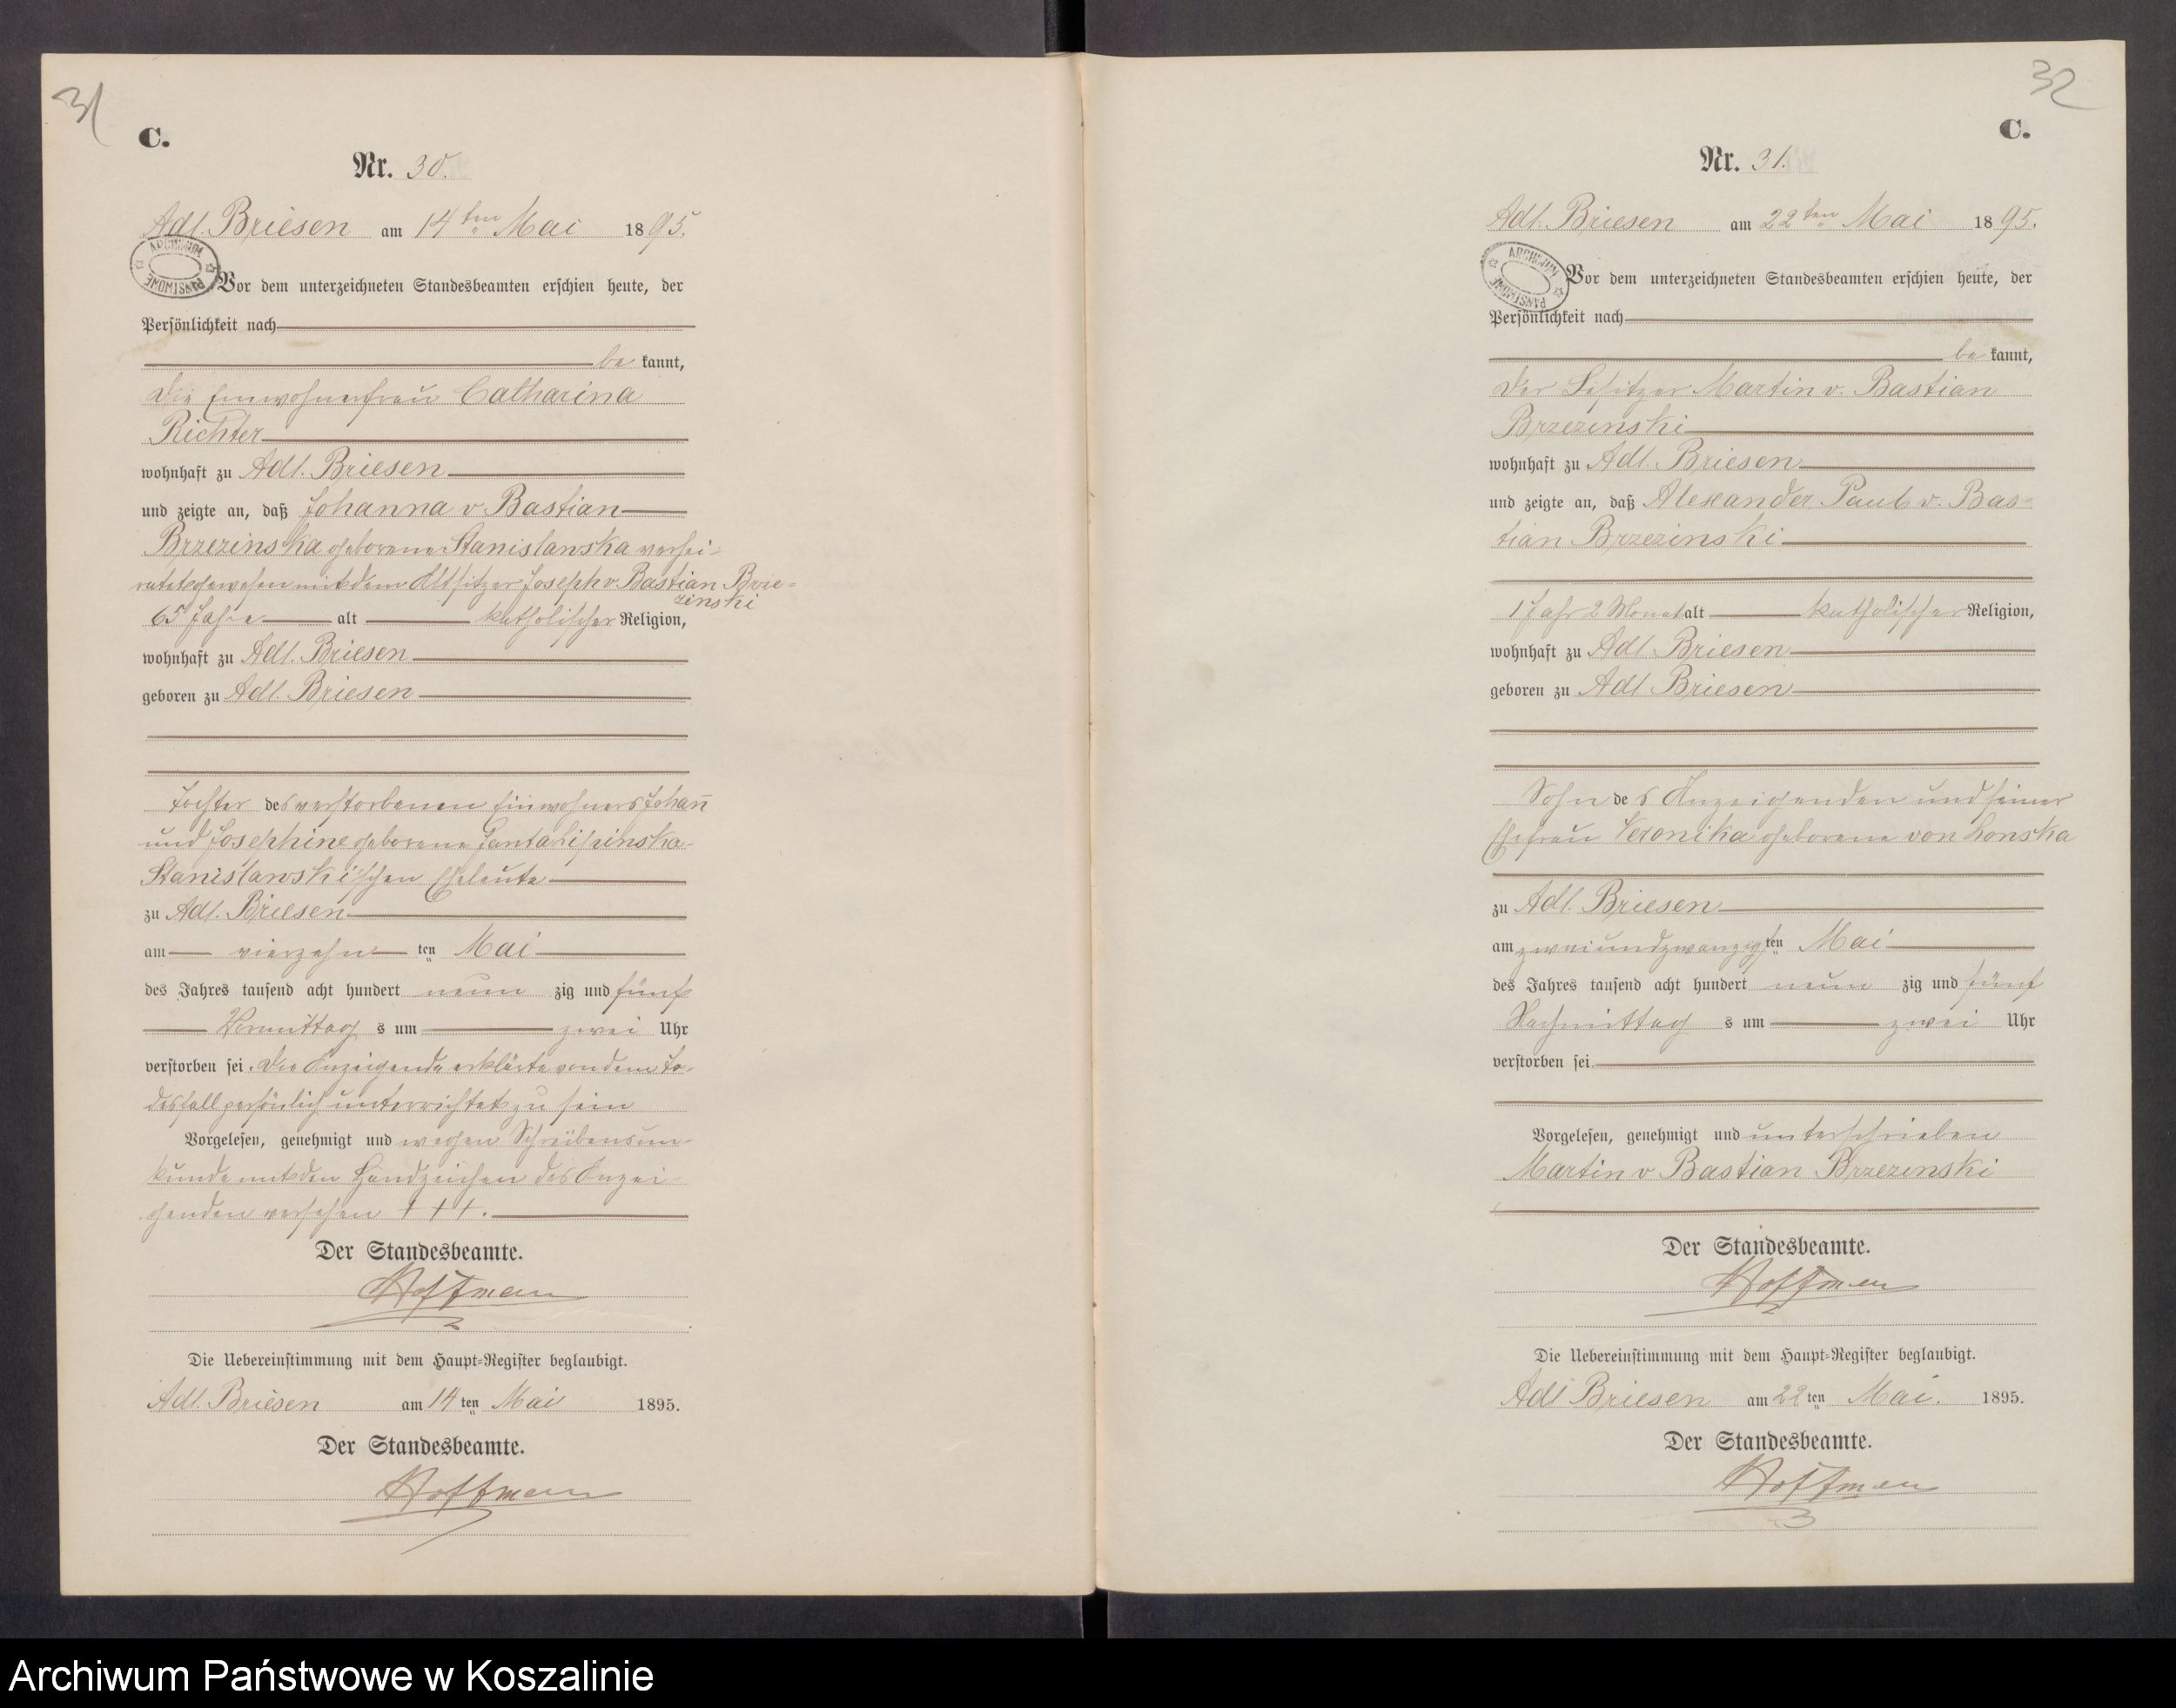 31
C.
Nr. 30.
Adl. Briesen am 14ten Mai 1895.
ARCHIWUM PAŃSTWOWE
Vor dem unterzeichneten Standesbeamten erschien heute, der
Persönlichkeit nach
be kannt,
die Einwohnerfrau Catharina
Richter
wohnhaft zu Adl. Briesen
und zeigte an, daß Johanna v. Bastian
Brzezinska geborene Stanislawska verhei-
ratet gewesen mit dem Altsitzer Joseph v. Bastian Brze-
zinski
65 Jahre alt katholischer Religion,
wohnhaft zu Adl. Briesen
geboren zu Adl. Briesen
Tochter des verstorbenen Einwohners Johann
und Josephine geborene
Stanislawski'schen Eheleute
zu Adl. Briesen
am vierzehn ten Mai
des Jahres tausend acht hundert neun zig und fünf
Vormittag s um zwei Uhr
verstorben sei. Die Anzeigende erklärte von dem To-
desfall persönlich unterrichtet zu sein
Vorgelesen, genehmigt und wegen Schreibensun-
kunde mit den Handzeichen des Anzei-
genden versehen + + +.
Der Standesbeamte.
Hoffman
Die Uebereinstimmung mit dem Haupt=Register beglaubigt.
Adl. Briesen am 14 ten Mai 1895.
Der Standesbeamte.
Hoffman
32
C.
Nr. 31.
Adl. Briesen am 22ten Mai 1895.
ARCHIWUM PAŃSTWOWE
Vor dem unterzeichneten Standesbeamten erschien heute, der
Persönlichkeit nach
be kannt,
der Besitzer Martin v. Bastian
Brzezinski
wohnhaft zu Adl. Briesen
und zeigte an, daß Alexander Paul v. Bas-
tian Brzezinski
1 Jahr 2 Monat alt katholischer Religion,
wohnhaft zu Adl. Briesen
geboren zu Adl. Briesen
Sohn des Anzeigenden und seiner
Ehefrau Veronika geborene von Lonska
zu Adl. Briesen
am zweiundzwanzigsten Mai
des Jahres tausend acht hundert neun zig und fünf
Nachmittag s um zwei Uhr
verstorben sei.
Vorgelesen, genehmigt und unterschrieben
Martin v. Bastian Brzezinski
Der Standesbeamte.
Hoffman
Die Uebereinstimmung mit dem Haupt=Register beglaubigt.
Adl Briesen am 22 ten Mai. 1895.
Der Standesbeamte.
Hoffman
Archiwum Państwowe w Koszalinie